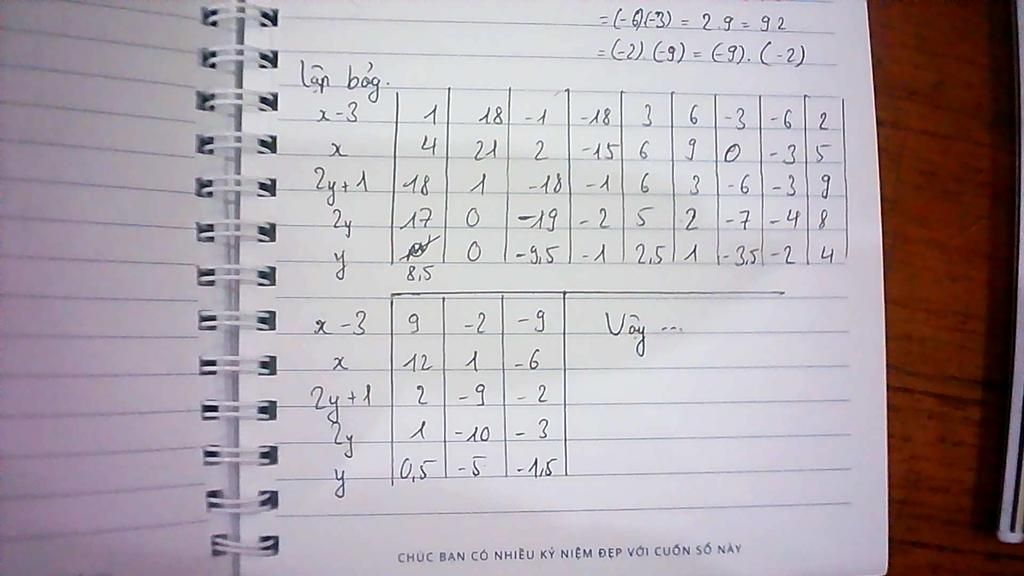 = (-6)(-3) = 2.9 = 9 2
= (-2) (-9) = (-9). (-2)
lập bảg.
x-3 1 18 -1 -18 3 6 -3 -6 2
x 4 21 2 -15 6 9 0 -3 5
2y+1 18 1 -18 -1 6 3 -6 -3 9
2y 17 0 -19 -2 5 2 -7 -4 8
y 8,5 0 -9,5 -1 2,5 1 -3,5 -2 4
x-3 9 -2 -9 Vậy ...
x 12 1 -6
2y+1 2 -9 -2
2y 1 -10 -3
y 0,5 -5 -1,5
CHÚC BẠN CÓ NHIỀU KỶ NIỆM ĐẸP VỚI CUỐN SỔ NÀY